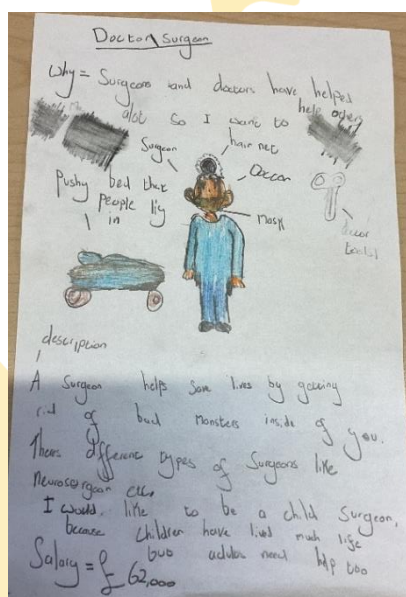 Doctor/Surgeon
Why = Surgeons and doctors have helped
alot so I want to help others
Surgeon
hair net
Doctor
Pushy bed that
people lig
in
mask
tools
description
A surgeon helps save lives by getting
rid of bad monsters inside of you.
Theres different types of surgeons like
neurosurgeon etc.
I would like to be a child surgeon,
because children have lived much life
but adults need help too
Salary = £62,000